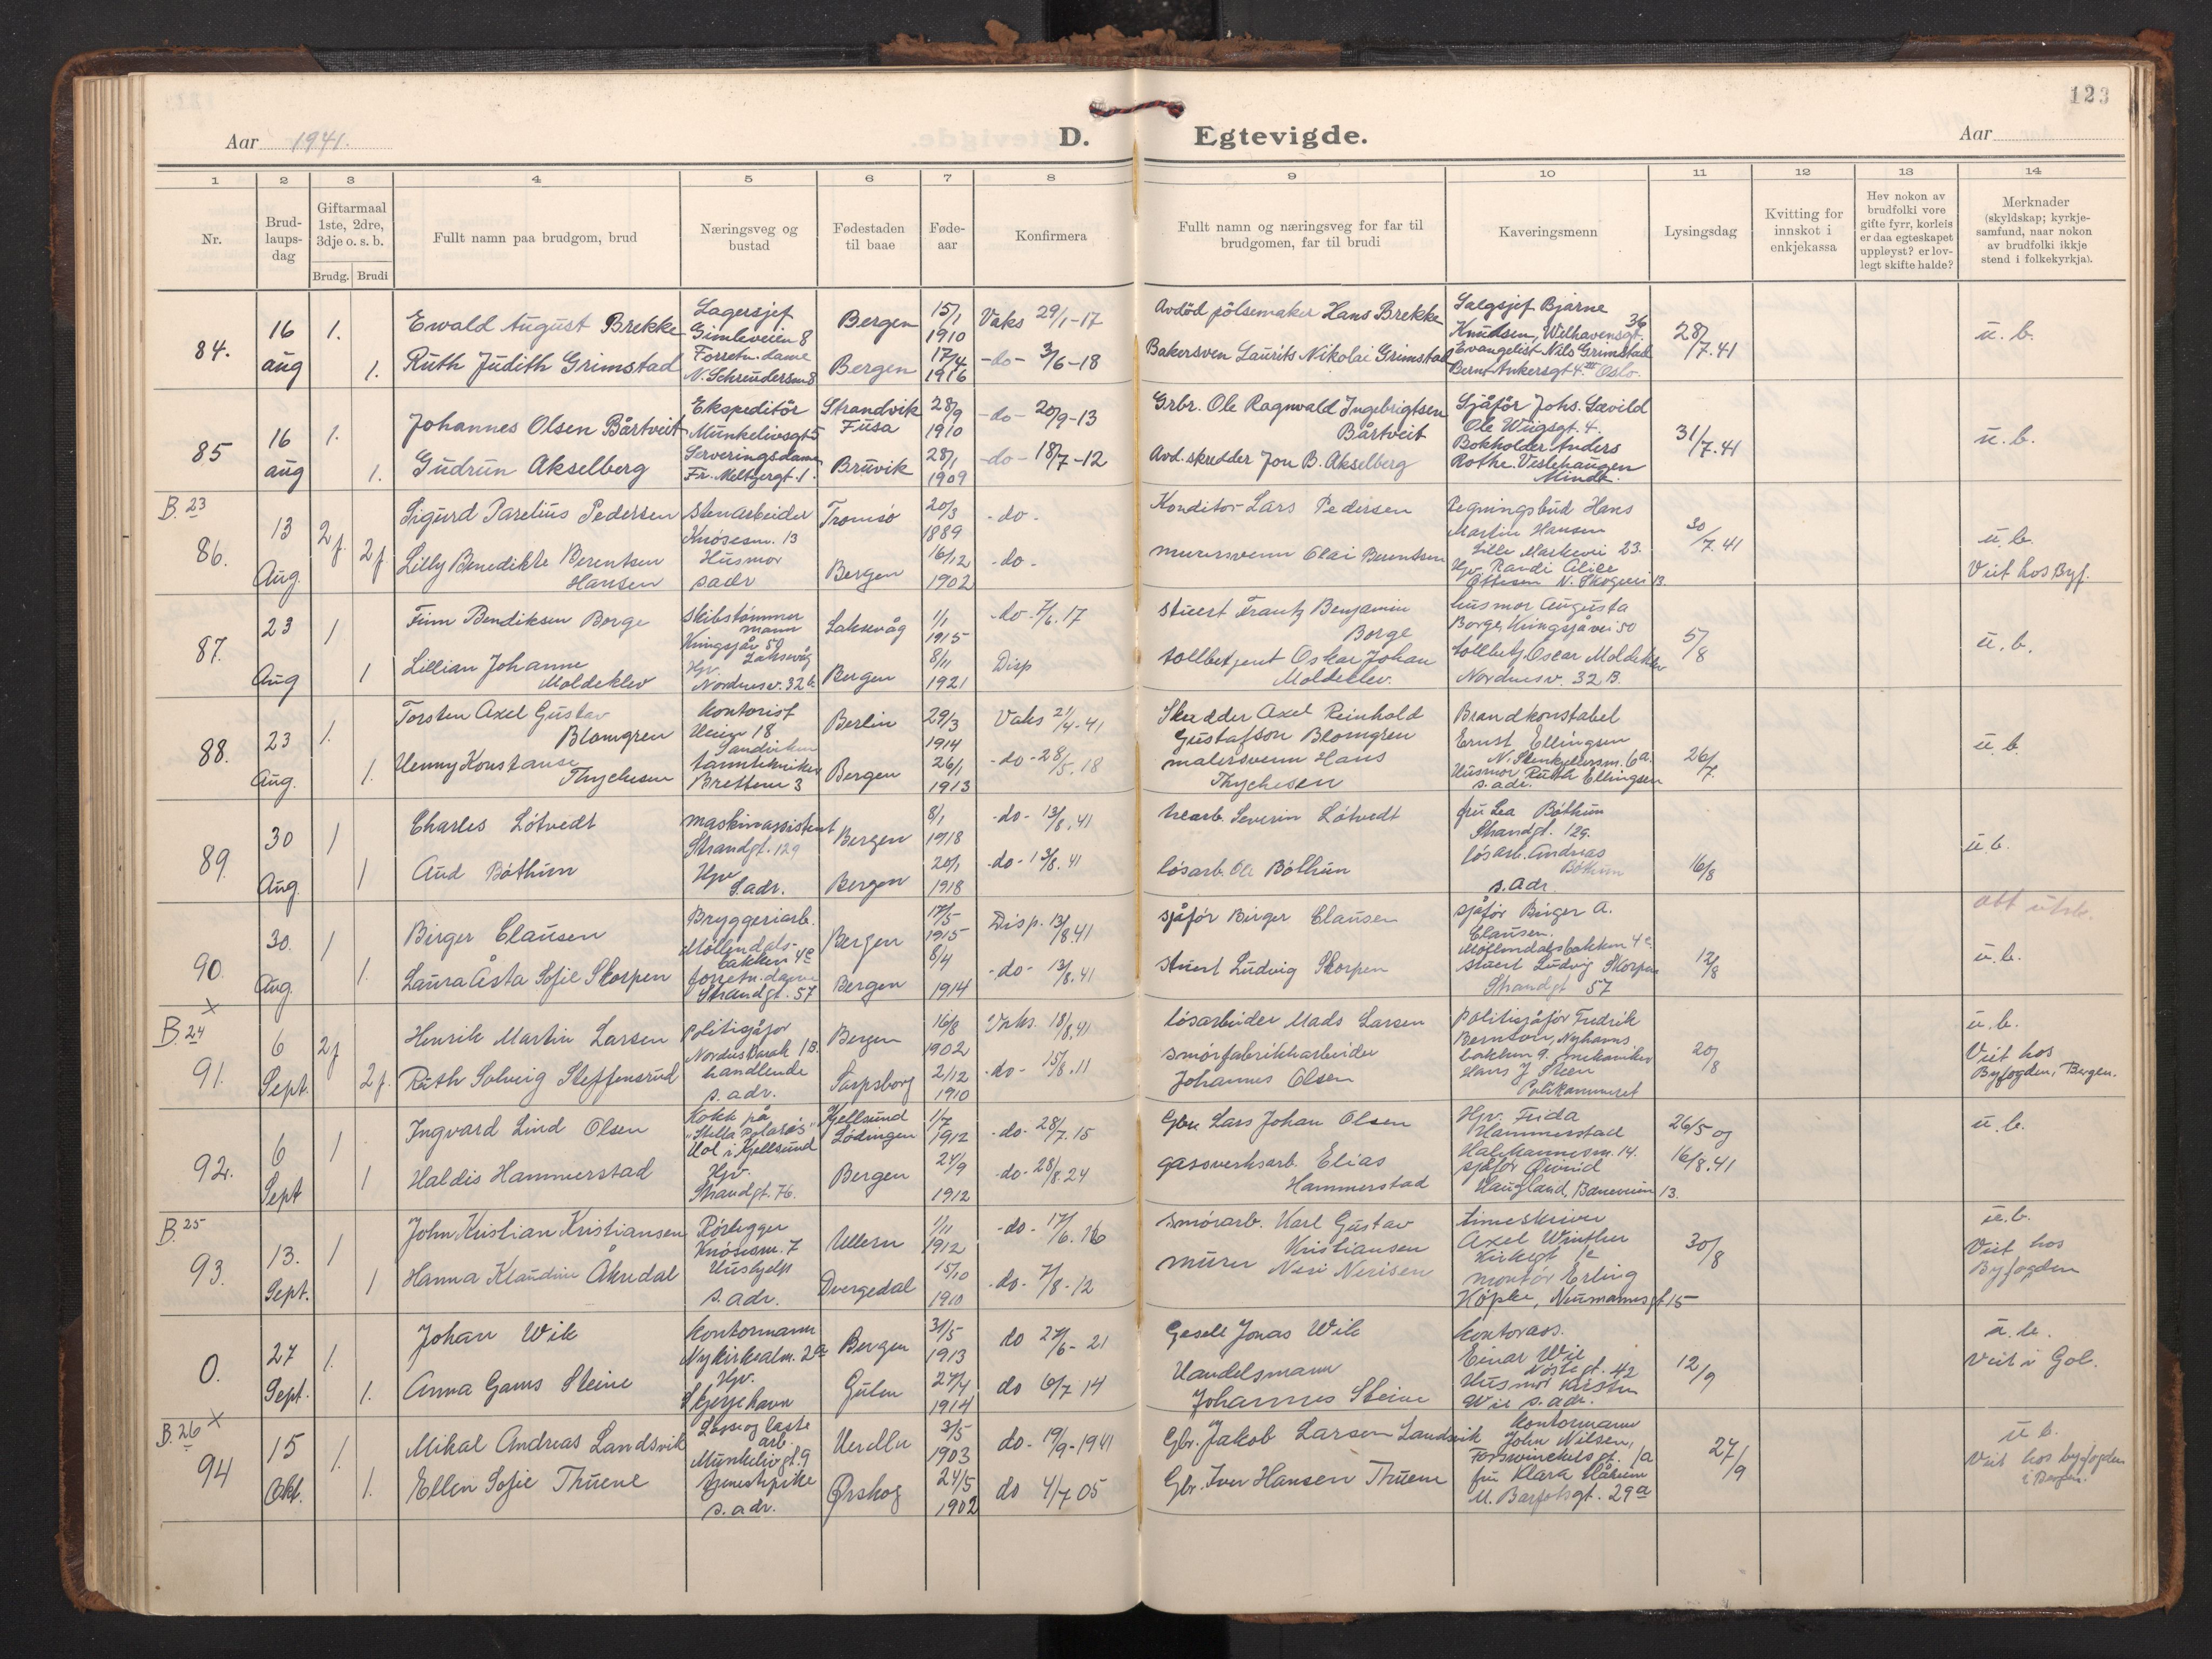 123
Aar 1941.
D. Egtevigde.
Aar
1 2 3 4 5 6 7 8 9 10 11 12 13 14
Nr.
Brud-
laups-
dag
Giftarmaal
1ste, 2dre,
3dje o. s. b.
Brudg. Brudi
Fullt namn paa brudgom, brud
Næringsveg og
bustad
Fødestaden
til baae
Føde-
aar
Konfirmera
Fullt namn og næringsveg for far til
brudgomen, far til brudi
Kaveringsmenn
Lysingsdag
Kvitting for
innskot i
enkjekassa
Hev nokon av
brudfolki vore
gifte fyrr, korleis
er daa egteskapet
uppleyst? er lov-
legt skifte halde?
Merknader
(skyldskap; kyrkje-
samfund, naar nokon
av brudfolki ikkje
stend i folkekyrkja).
84.
16
aug
1.
1.
Ewald August Brekke
Ruth Judith Grimstad
Lagersjef
Gimleveien 8
Forretn. dame
Bergen
Bergen
15/1
1910
17/4
1916
Vaks 29/1-17
-do- 3/6-18
Avdöd pölsemaker Hans Brekke
Bakersven Laurits Nikolai Grimstad
Salgsjef Bjarne
Knudsen, Welhavensgt. 36
Evangelist Nils Grimstad
Bernt Ankersgt 4.III Oslo.
28/7.41
u. b.
85
16
aug
1.
1.
Johannes Olsen Bårtveit
Gudrun Akselberg
Ekspeditör
Munkelivsgt 5
Serveringsdame
Fr. Meltzersgt. 1.
Strandvik
Fusa
Bruvik
28/9
1910
28/1
1909
-do- 20/9-13
-do- 18/7-12
Grbr. Ole Ragnvald Ingebrigtsen
Bårtveit
Avd. skredder Jon B. Akselberg
Sjåför Johs. Sævild
Ole Wiigsgt. 4.
Bokholder Anders
Rothe. Veslehaugen
Minde.
31/7.41
u. b.
B. 23
86.
13
Aug.
2 f.
2 f.
Sigurd Parelius Pedersen
Lilly Benedikte Berentsen
Hansen
Stenarbeider
Knösesm. 13
Husmor
sadr
Tromsö
Bergen
20/3
1889
16/12
1902
-do-
-do-
Konditor Lars Pedersen
murersvenn Olai Berentsen
Regningsbud Hans
Martin Hansen
Lille Markevei 23.
Hjv. Randi Alice
Ottesen N. Skogvei 13.
30/7.41
u. b.
Viet hos Byf.
87.
23
Aug
1
1
Finn Bendiksen Borge
Lillian Johanne
Moldeklev
Skibstömmer
mann
Kringsjåv 50
Laksevåg
Hjv.
Nordnesv. 32 b
Laksevåg
Bergen
1/1
1915
8/11
1921
-do- 7/6.17
Disp
Stuert Frantz Benjamin
Borge
tollbetjent Oskar Johan
Moldeklev.
husmor Augusta
Borge, Kringsjåvei 50
tollbetj. Oscar Moldeklev
Nordnesv. 32 B.
5/8
u. b.
88.
23
Aug.
1.
1.
Torsten Axel Gustav
Blomgren
Henny Konstanse
Thychesen
Kontorist
Heien 18
Sandviken
tanntekniker
Brettevn 3
Berlin
Bergen
29/3
1914
26/1
1913
Vaks 21/4-41
-do- 28/5.18
Skredder Axel Reinhold
Gustafson Blomgren
malersvenn Hans
Thychesen
Brandkonstabel
Ernst Ellingsen
N. Stenkjellersm. 6a.
Husmor Ruth Ellingsen
s. adr.
26/7
u. b.
89.
30
Aug.
1
1
Charles Lötvedt
Aud Böthun
maskinassistent
Strandgt. 129
Hjv
S. adr.
Bergen
Bergen
8/1
1918
20/1
1918
-do- 13/8.41
-do- 13/8.41
trearb. Severin Lötvedt
lösarb. Ole Böthun
fru Lea Böthun
Strandgt. 129.
lösarb. Andreas
Böthun
s. adr.
16/8
u. b.
90.
30.
Aug.
1
1.
Birger Clausen
Laura Åsta Sofie Skorpen
Bryggeriarb.
Möllendals-
bakken 4c
forretn. dame
Strandgt. 57
Bergen
Bergen
17/5
1915
8/4
1914
Disp. 13/8.41
-do- 13/8.41
sjåför Birger Clausen
Stuert Ludvig Skorpen
sjåför Birger A.
Clausen.
Möllendalsbakken 4c.
Stuert Ludvig Skorpen
Strandgt 57
12/8
att utsk.
u. b.
B. 24 x
91.
6
Sept.
2 f
2 f.
Henrik Martin Larsen
Ruth Solveig Steffensrud
Politisjåför
Nordnes Barak 1 B.
handlende
s. adr.
Bergen
Sarpsborg
16/8
1902
2/12
1910
Vaks. 18/8.41
-do- 15/8.11
lösarbeider Mads Larsen
Smörfabrikkarbeider
Johannes Olsen
Politisjåför Fredrik
Berntsen, Nyhavns
bakken 9. mekaniker
Hans J Steen
Politikammeret
20/8
u. b.
Viet hos
Byfogden, Bergen.
92.
6
Sept
1
1
Ingvard Lind Olsen
Haldis Hammerstad
Kokk på
"Stella Polaris"
Hol i Kjellsund
Hjv.
Strandgt. 76.
Kjellsund
Lödingen
Bergen
1/7
1912
24/9
1912
-do- 28/7.15
-do- 28/8.24
Gbr. Lars Johan Olsen
gassverksarb. Elias
Hammerstad
Hjv. Frida
Hammerstad
sjåför Øivind
Haugland, Baneveien 13.
26/5 og
16/8.41
u. b.
B. 25
93.
13.
Sept.
1
1
John Kristian Kristiansen
Hanna Klaudine Åkredal
Rörlegger
Knösesm. 7
Hushjelp
s. adr.
Ullern
Dvergedal
1/11
1912
15/10
1910
-do- 17/6.16
-do- 7/8-12
Smörarb. Karl Gustav
Kristiansen
murer Neri Nerisen
timeskriver
Axel Winther
montör Erling
Höpke, Neumannsgt 15
30/8
u. b.
Viet hos
Byfogden
0.
27
Sept.
1.
1.
Johan Wik
Anna Gams Steine
Kontormann
Nykirkealm. 2a
Hjv.
Skjerjehavn
Bergen
Gulen
31/5
1913
27/4
1914
do 27/6-21
do 6/7 14
Gesell Jonas Wik
Handelsmann
Johannes Steine
Kontorass.
Einar Wik
Nöstegt. 42
Husmor Kirsten
Wik s. adr.
12/9
u. b.
Viet i Gol.
B. 26 x
94
15
Okt.
1.
1.
Mikal Andreas Landsvik
Ellen Sofie Thuene
Losse og laste
arb.
Munkelivgt. 9
tjenestepike
s. adr.
Ørskog
3/5
1903
24/5
1902
do- 19/9-1941
do 4/7 05
Gbr. Jakob Larsen Landsvik
Gbr. Iver Hansen Thuene
Kontormann
John Nilsen,
Forswinckelsgt. 1a
fru Klara Håkon
U. Barfotsgt. 29a
27/9
u b.
Viet hos byfogden
i Bergen.